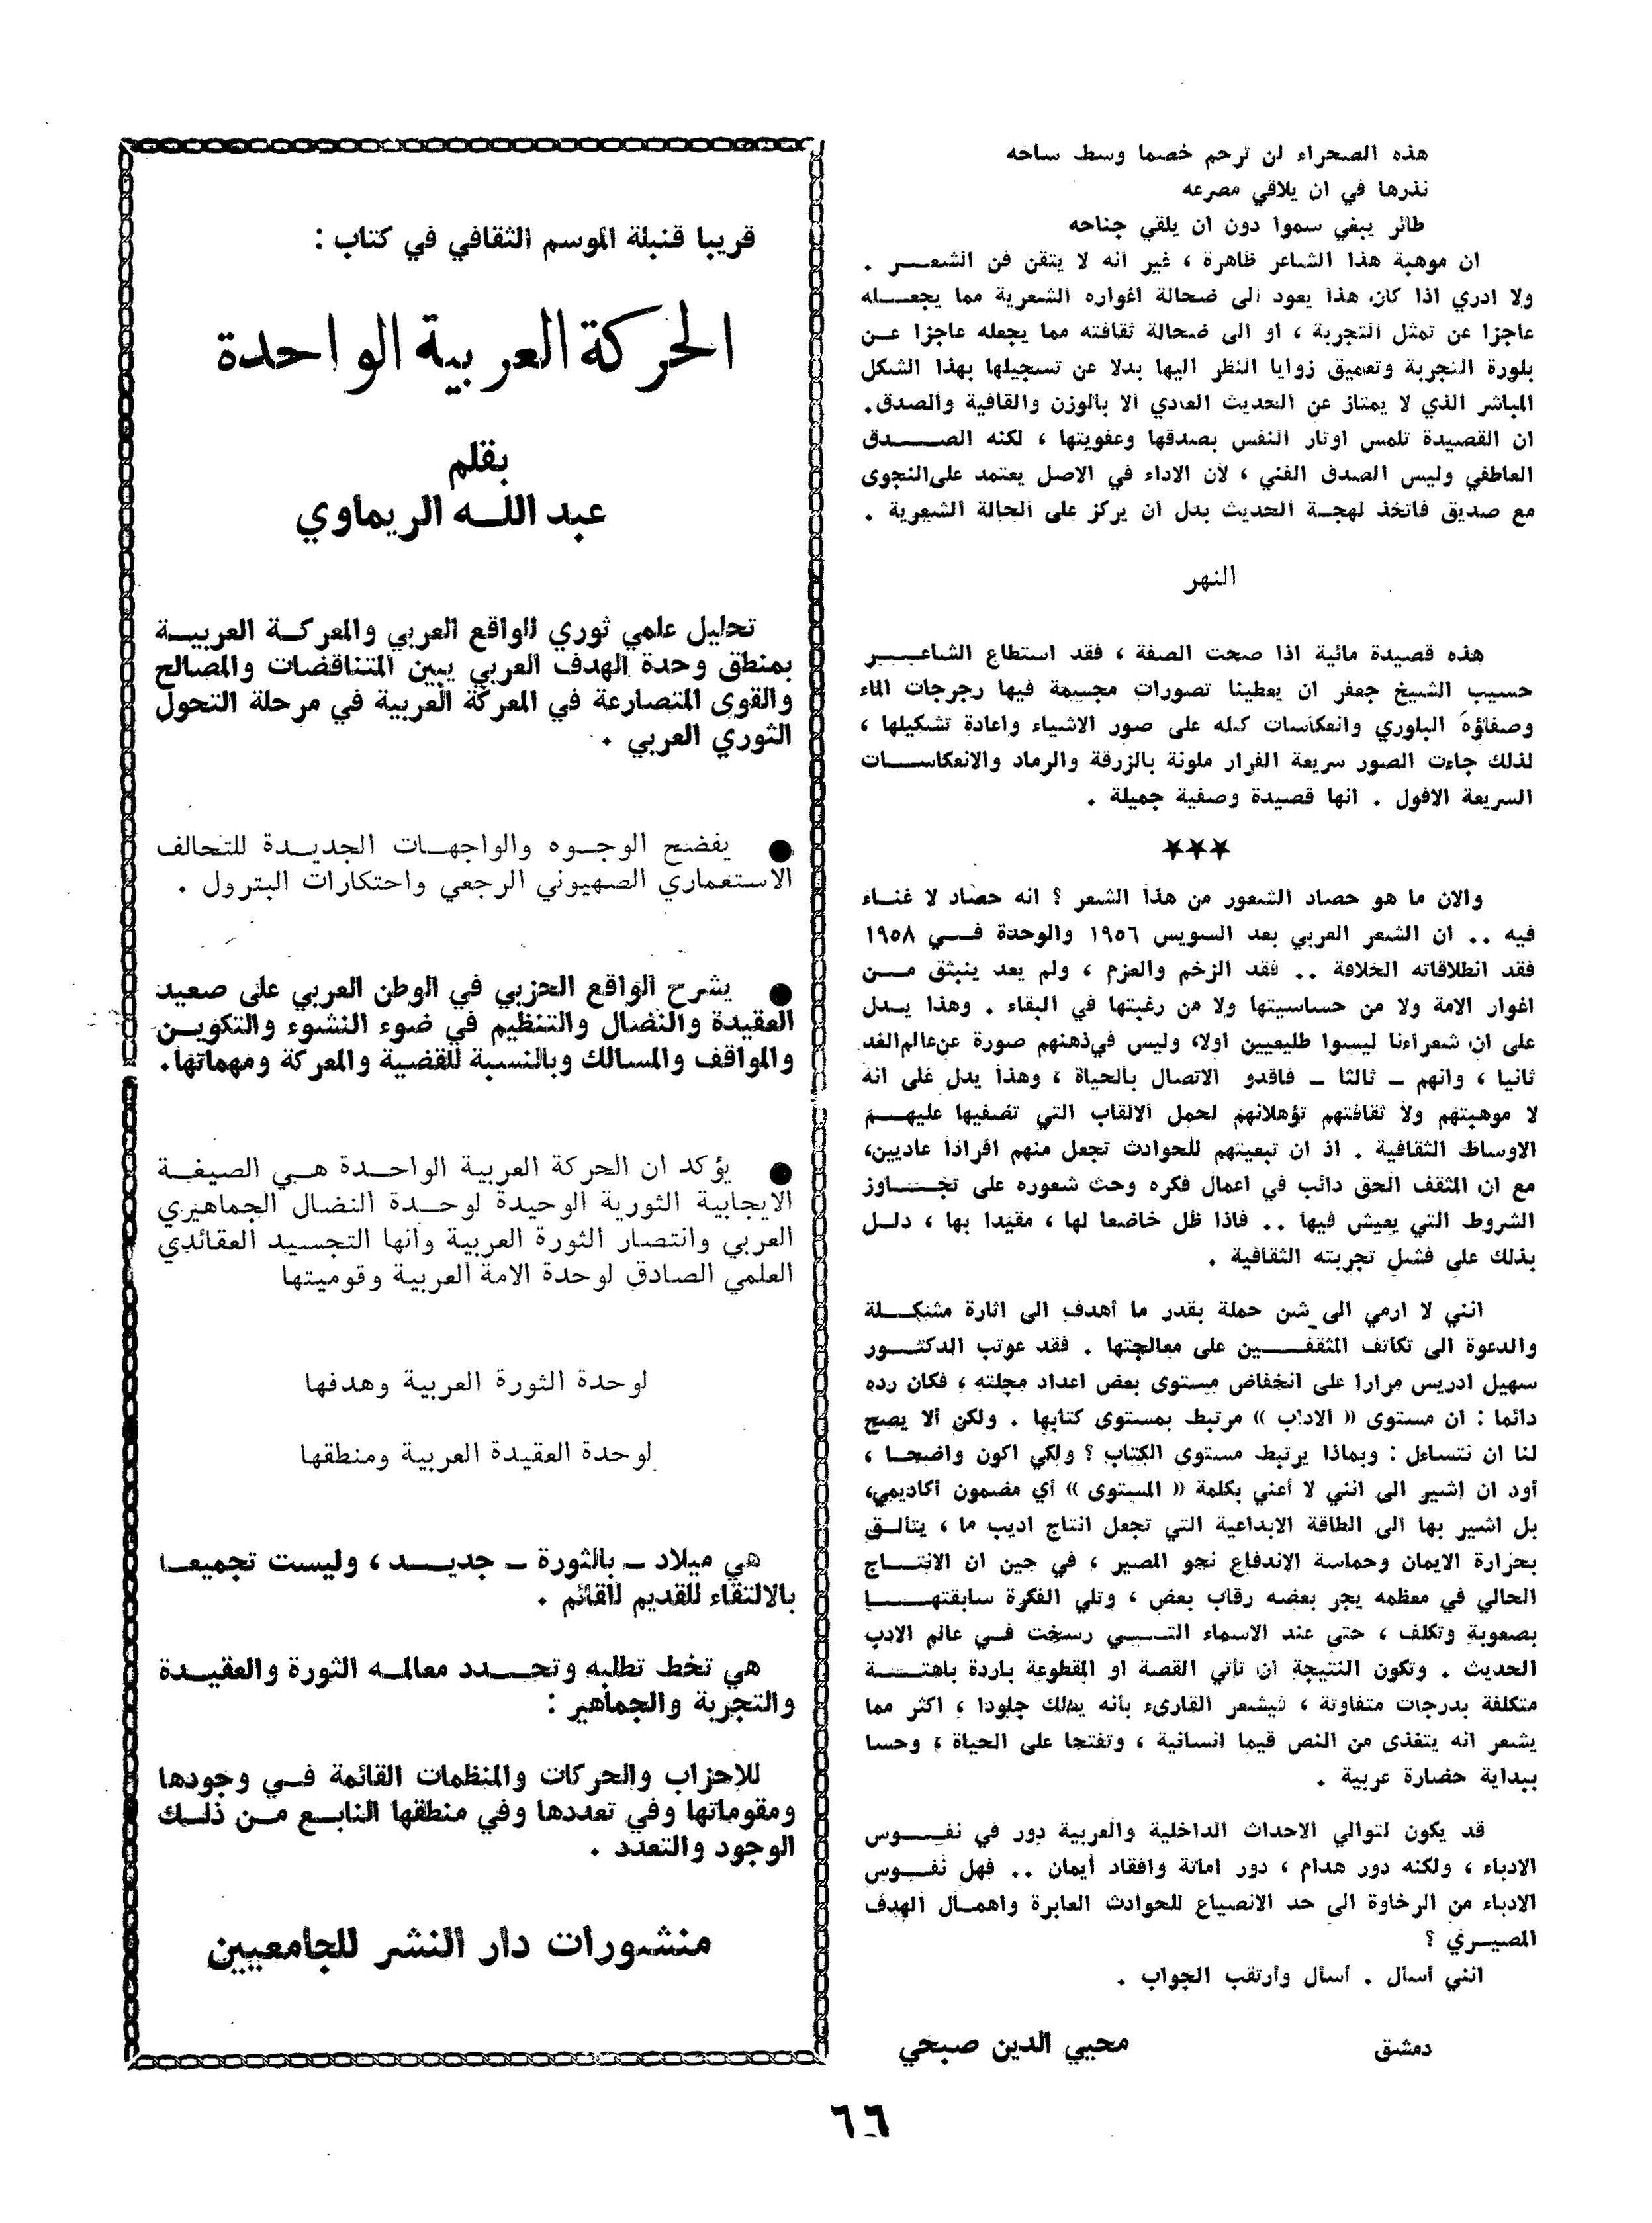 هذه الصحراء لن ترحم خصما وسط ساحه
نذرها في ان يلاقي مصرعه
طائر يبغي سموا دون ان يلقي جناحه
ان موهبة هذا الشاعر ظاهرة ، غير انه لا يتقن فن الشعر .
ولا ادري اذا كان هذا يعود الى ضحالة اغواره الشعرية مما يجعله
عاجزا عن تمثل التجربة ، او الى ضحالة ثقافته مما يجعله عاجزا عن
بلورة التجربة وتعميق زوايا النظر اليها بدلا عن تسجيلها بهذا الشكل
المباشر الذي لا يمتاز عن الحديث العادي الا بالوزن والقافية والصدق.
ان القصيدة تلمس اوتار النفس بصدقها وعفويتها ، لكنه الصدق
العاطفي وليس الصدق الفني ، لان الاداء في الاصل يعتمد على النجوى
مع صديق فاتخذ لهجة الحديث بدل ان يركز على الحالة الشعرية .
النهر
هذه قصيدة مائية اذا صحت الصفة ، فقد استطاع الشاعر
حسيب الشيخ جعفر ان يعطينا تصورات مجسمة فيها رجرجات الماء
وصفاؤه البلوري وانعكاسات كله على صور الاشياء واعادة تشكيلها ،
لذلك جاءت الصور سريعة الفرار ملونة بالزرقة والرماد والانعكاسات
السريعة الافول . انها قصيدة وصفية جميلة .
★★★
والان ما هو حصاد الشعور من هذا الشعر ؟ انه حصاد لا غناء
فيه .. ان الشعر العربي بعد السويس ١٩٥٦ والوحدة في ١٩٥٨
فقد انطلاقاته الخلاقة .. فقد الزخم والعزم ، ولم يعد ينبثق من
اغوار الامة ولا من حساسيتها ولا من رغبتها في البقاء . وهذا يدل
على ان شعراءنا ليسوا طليعيين اولا، وليس في ذهنهم صورة عن عالم الغد
ثانيا ، وانهم - ثالثا - فاقدو الاتصال بالحياة ، وهذا يدل على انه
لا موهبتهم ولا ثقافتهم تؤهلانهم لحمل الالقاب التي تضفيها عليهم
الاوساط الثقافية . اذ ان تبعيتهم للحوادث تجعل منهم افرادا عاديين،
مع ان المثقف الحق دائب في اعمال فكره وحث شعوره على تجاوز
الشروط التي يعيش فيها .. فاذا ظل خاضعا لها ، مقيدا بها ، دلل
بذلك على فشل تجربته الثقافية .
انني لا ارمي الى شن حملة بقدر ما أهدف الى اثارة مشكلة
والدعوة الى تكاتف المثقفين على معالجتها . فقد عوتب الدكتور
سهيل ادريس مرارا على انخفاض مستوى بعض اعداد مجلته ، فكان رده
دائما : ان مستوى « الاداب » مرتبط بمستوى كتابها . ولكن ألا يصح
لنا ان نتساءل : وبماذا يرتبط مستوى الكتاب ؟ ولكي اكون واضحا ،
أود ان اشير الى انني لا أعني بكلمة « المستوى » أي مضمون أكاديمي،
بل اشير بها الى الطاقة الابداعية التي تجعل انتاج اديب ما ، يتألق
بحرارة الايمان وحماسة الاندفاع نحو المصير ، في حين ان الانتاج
الحالي في معظمه يجر بعضه رقاب بعض ، وتلي الفكرة سابقتها
بصعوبة وتكلف ، حتى عند الاسماء التي رسخت في عالم الادب
الحديث . وتكون النتيجة ان تأتي القصة او المقطوعة باردة باهتة
متكلفة بدرجات متفاوتة ، فيشعر القارىء بأنه يعلك جلودا ، اكثر مما
يشعر انه يتغذى من النص قيما انسانية ، وتفتحا على الحياة ، وحسا
ببداية حضارة عربية .
قد يكون لتوالي الاحداث الداخلية والعربية دور في نفوس
الادباء ، ولكنه دور هدام ، دور اماتة وافقاد أيمان .. فهل نفوس
الادباء من الرخاوة الى حد الانصياع للحوادث العابرة واهمال الهدف
المصيري ؟
انني أسأل . أسأل وأرتقب الجواب .
دمشق محيي الدين صبحي
قريبا قنبلة الموسم الثقافي في كتاب :
الحركة العربية الواحدة
بقلم
عبد الله الريماوي
تحليل علمي ثوري للواقع العربي والمعركة العربية
بمنطق وحدة الهدف العربي يبين المتناقضات والمصالح
والقوى المتصارعة في المعركة العربية في مرحلة التحول
الثوري العربي .
● يفضح الوجوه والواجهات الجديدة للتحالف
الاستعماري الصهيوني الرجعي واحتكارات البترول .
● يشرح الواقع الحزبي في الوطن العربي على صعيد
العقيدة والنضال والتنظيم في ضوء النشوء والتكوين
والمواقف والمسالك وبالنسبة للقضية والمعركة ومهماتها.
● يؤكد ان الحركة العربية الواحدة هي الصيغة
الايجابية الثورية الوحيدة لوحدة النضال الجماهيري
العربي وانتصار الثورة العربية وانها التجسيد العقائدي
العلمي الصادق لوحدة الامة العربية وقوميتها
لوحدة الثورة العربية وهدفها
لوحدة العقيدة العربية ومنطقها
هي ميلاد - بالثورة - جديد ، وليست تجميعا
بالالتقاء للقديم القائم .
هي تخط تطلبه وتحدد معالمه الثورة والعقيدة
والتجربة والجماهير :
للاحزاب والحركات والمنظمات القائمة في وجودها
ومقوماتها وفي تعددها وفي منطقها النابع من ذلك
الوجود والتعدد .
منشورات دار النشر للجامعيين
٦٦